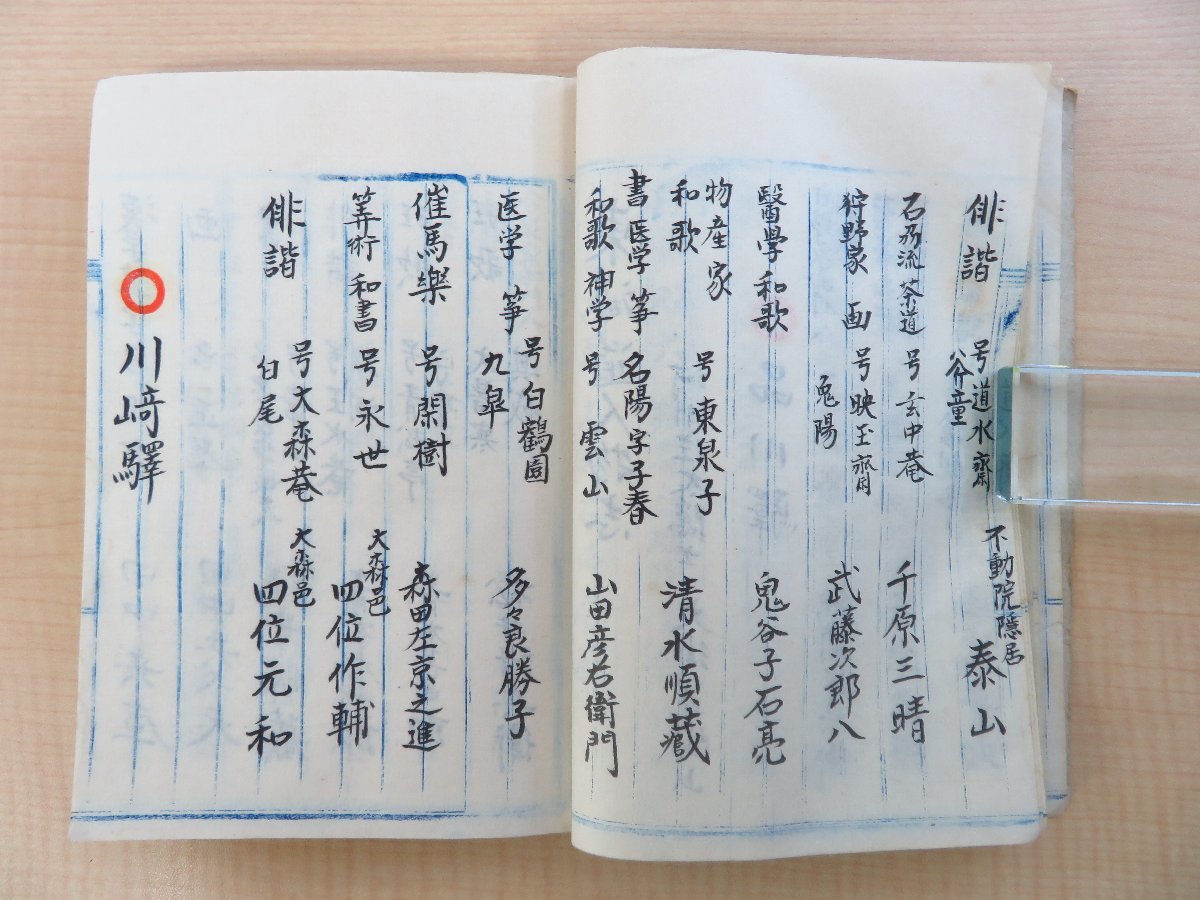 俳諧 号道水齋 谷童 不動院隠居 泰山
石州流茶道 号玄中菴 千原三晴
狩野家 画 号映玉齋 兎陽 武藤次郎八
醫學 和歌 鬼谷子石亮
物産家 和歌 号東泉子 清水順蔵
書 医学 筝 名陽字子春
和歌 神学 号雲山 山田彦右衛門
医学 筝 号白鶴園 九皐 多々良勝子
催馬樂 号閑樹 森田左京之進
筭術 和書 号永世 大森邑 四位作輔
俳諧 号大森菴 白尾 大森邑 四位元和
川﨑驛